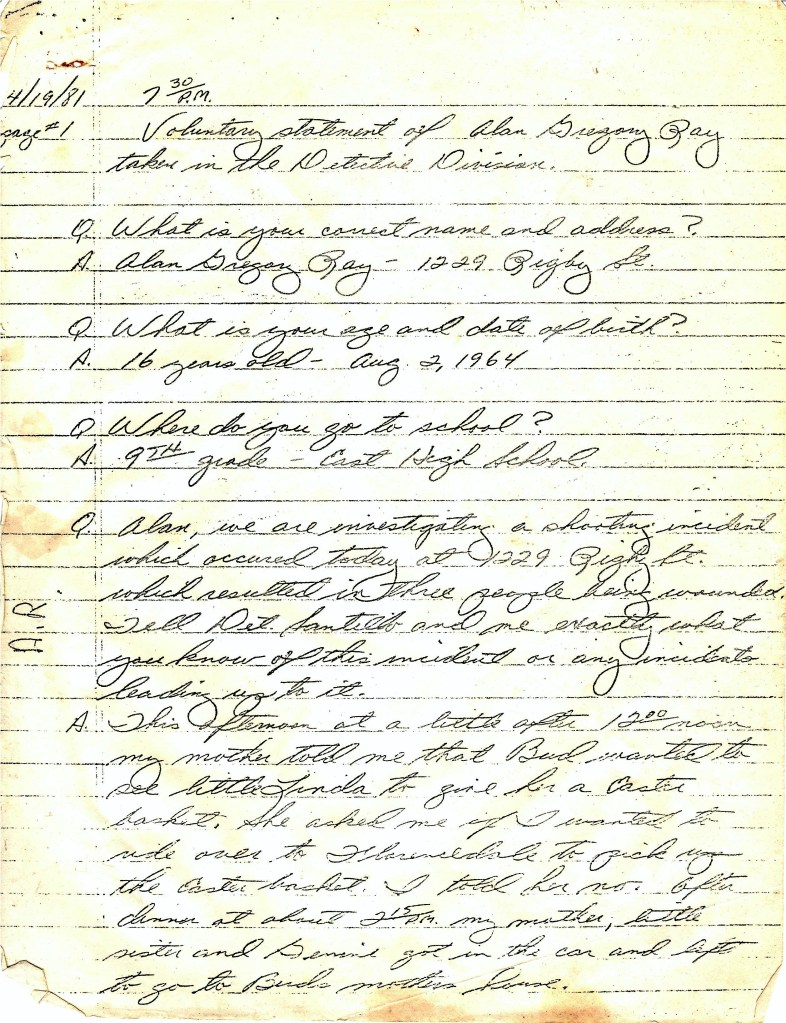 4/19/81 7 30/P.M.
page #1 Voluntary statement of Alan Gregory Ray
taken in the Detective Division.
Q. What is your correct name and address?
A. Alan Gregory Ray - 1229 Rigby St.
Q What is your age and date of birth?
A. 16 years old - Aug. 2, 1964
Q Where do you go to school?
A. 9TH grade - East High School.
Q. Alan, we are investigating a shooting incident
which occured today at 1229 Rigby St.
which resulted in three people being wounded.
Tell Det Santillo and me exactly what
you know of this incident or any incidents
leading up to it.
A.R.
A. This afternoon at a little after 12 00 noon
my mother told me that Bud wanted to
see little Linda to give her a Easter
basket. She asked me if I wanted to
ride over to Florencedale to pick up
the Easter basket. I told her no. After
dinner at about 2 P.M. my mother, little
sister and Gennie got in the car and left
to go to Buds mothers house.